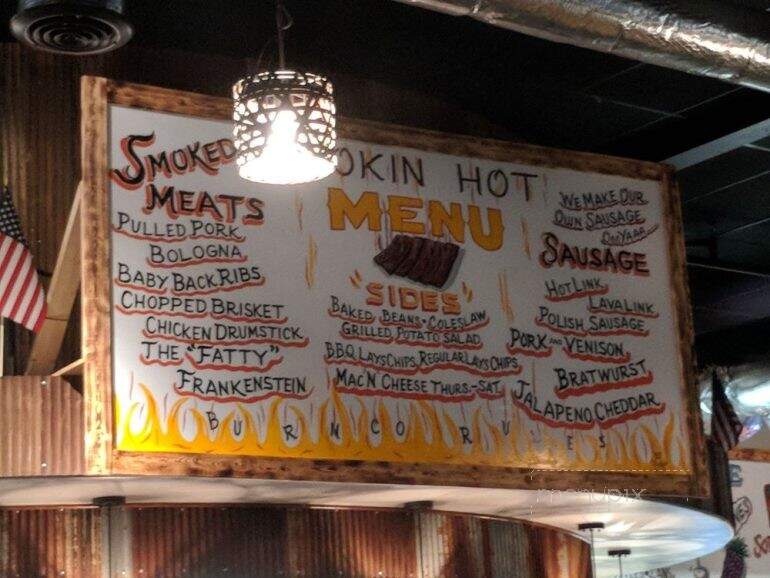 SMOKED
MEATS
PULLED PORK
BOLOGNA
BABY BACK RIBS
CHOPPED BRISKET
CHICKEN DRUMSTICK
THE "FATTY"
FRANKENSTEIN
OKIN HOT
MENU
"SIDES"
BAKED BEANS • COLESLAW
GRILLED POTATO SALAD
B.B.Q. LAYS CHIPS, REGULAR LAYS CHIPS
MAC'N CHEESE THURS.-SAT.
WE MAKE OUR
OWN SAUSAGE
SAUSAGE
HOT LINK
LAVA LINK
POLISH SAUSAGE
PORK AND VENISON
BRATWURST
JALAPENO CHEDDAR
BURNCO RULES
menupix